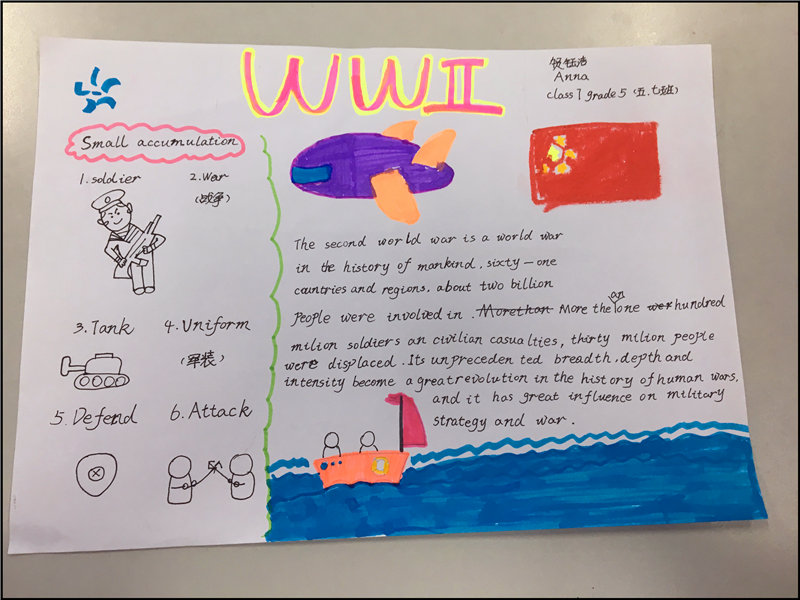 WWII
Anna
class 7 grade 5 (五.七班)
Small accumulation
1. soldier
2. War
(战争)
3. Tank
4. Uniform
(军装)
5. Defend
6. Attack
The second world war is a world war
in the history of mankind, sixty-one
countries and regions, about two billion
people were involved in. Morethan More than one wer hundred
milion soldiers an civilian casualties, thirty milion people
were displaced. Its unpreceden ted breadth, depth and
intensity become a great revolution in the history of human wars,
and it has great influence on military
strategy and war.